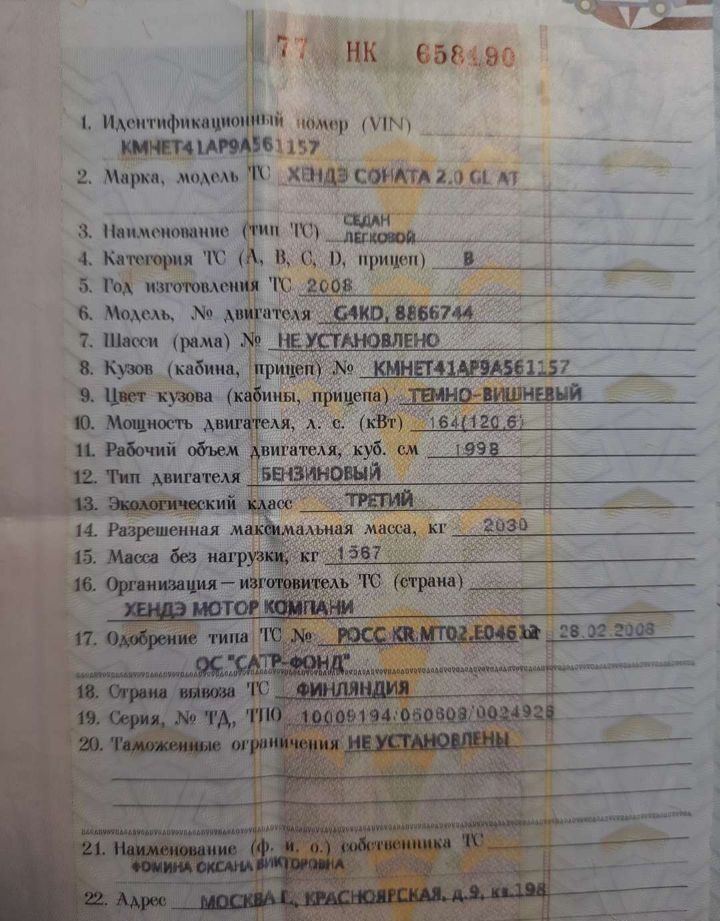 77 НК 658190
1. Идентификационный номер (VIN)
KMHET41AP9A561157
2. Марка, модель ТС ХЕНДЭ СОНАТА 2.0 GL AT
СЕДАН
3. Наименование (тип ТС) ЛЕГКОВОЙ
4. Категория ТС (A, B, C, D, прицеп) B
5. Год изготовления ТС 2008
6. Модель, № двигателя G4KD, 8866744
7. Шасси (рама) № НЕ УСТАНОВЛЕНО
8. Кузов (кабина, прицеп) № KMHET41AP9A561157
9. Цвет кузова (кабины, прицепа) ТЕМНО-ВИШНЕВЫЙ
10. Мощность двигателя, л. с. (кВт) 164(120,6)
11. Рабочий объем двигателя, куб. см 1998
12. Тип двигателя БЕНЗИНОВЫЙ
13. Экологический класс ТРЕТИЙ
14. Разрешенная максимальная масса, кг 2030
15. Масса без нагрузки, кг 1567
16. Организация — изготовитель ТС (страна)
ХЕНДЭ МОТОР КОМПАНИ
17. Одобрение типа ТС № РОСС KR.MT02.E04612 от 28.02.2008
ОС "САТР-ФОНД"
18. Страна вывоза ТС ФИНЛЯНДИЯ
19. Серия, № ТД, ТПО 10009194/050608/0024926
20. Таможенные ограничения НЕ УСТАНОВЛЕНЫ
21. Наименование (ф. и. о.) собственника ТС
ФОМИНА ОКСАНА ВИКТОРОВНА
22. Адрес МОСКВА Г., КРАСНОЯРСКАЯ, д.9, кв.198